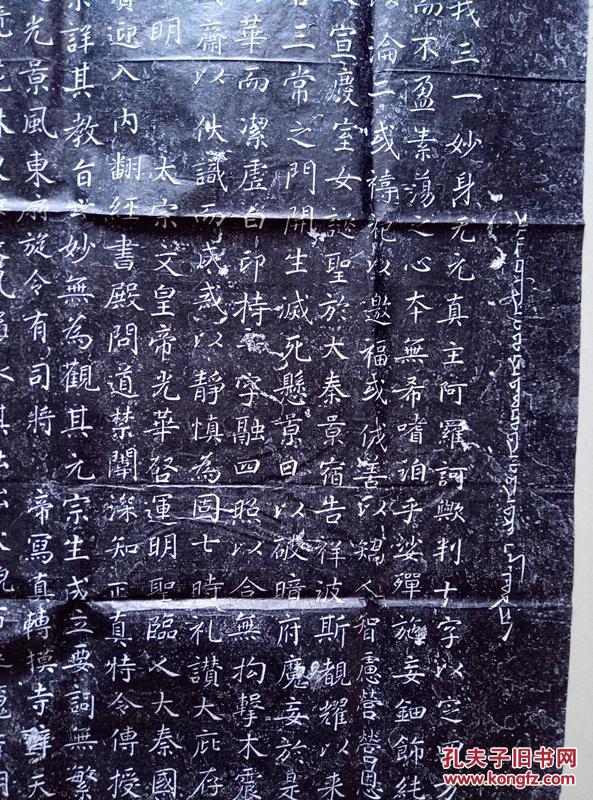 我三一妙身无元真主阿羅訶歟判十字以定四方
而不盈素蕩之心本無希嗜洎乎娑殫施妄鈿飾純
論二或禱祀以邀福或伐善以矯人智慮營營恩
宣慶室女誕聖於大秦景宿告祥波斯覩耀以来
三常之門開生滅死懸景日以破暗府魔妄於是
華而潔虛白印持十字融四照以合無拘擊木震
齋以伏識而成戒以靜慎為固七時礼讚大庇存
明 太宗文皇帝光華啓運明聖臨人大秦國
賓迎入內翻經書殿問道禁闈深知正真特令傳授
詳其教旨玄妙無為觀其元宗生成立要詞無繁
光景風東扇旋令有司將 帝寫真轉摸寺壁天
孔夫子旧书网
www.kongfz.com